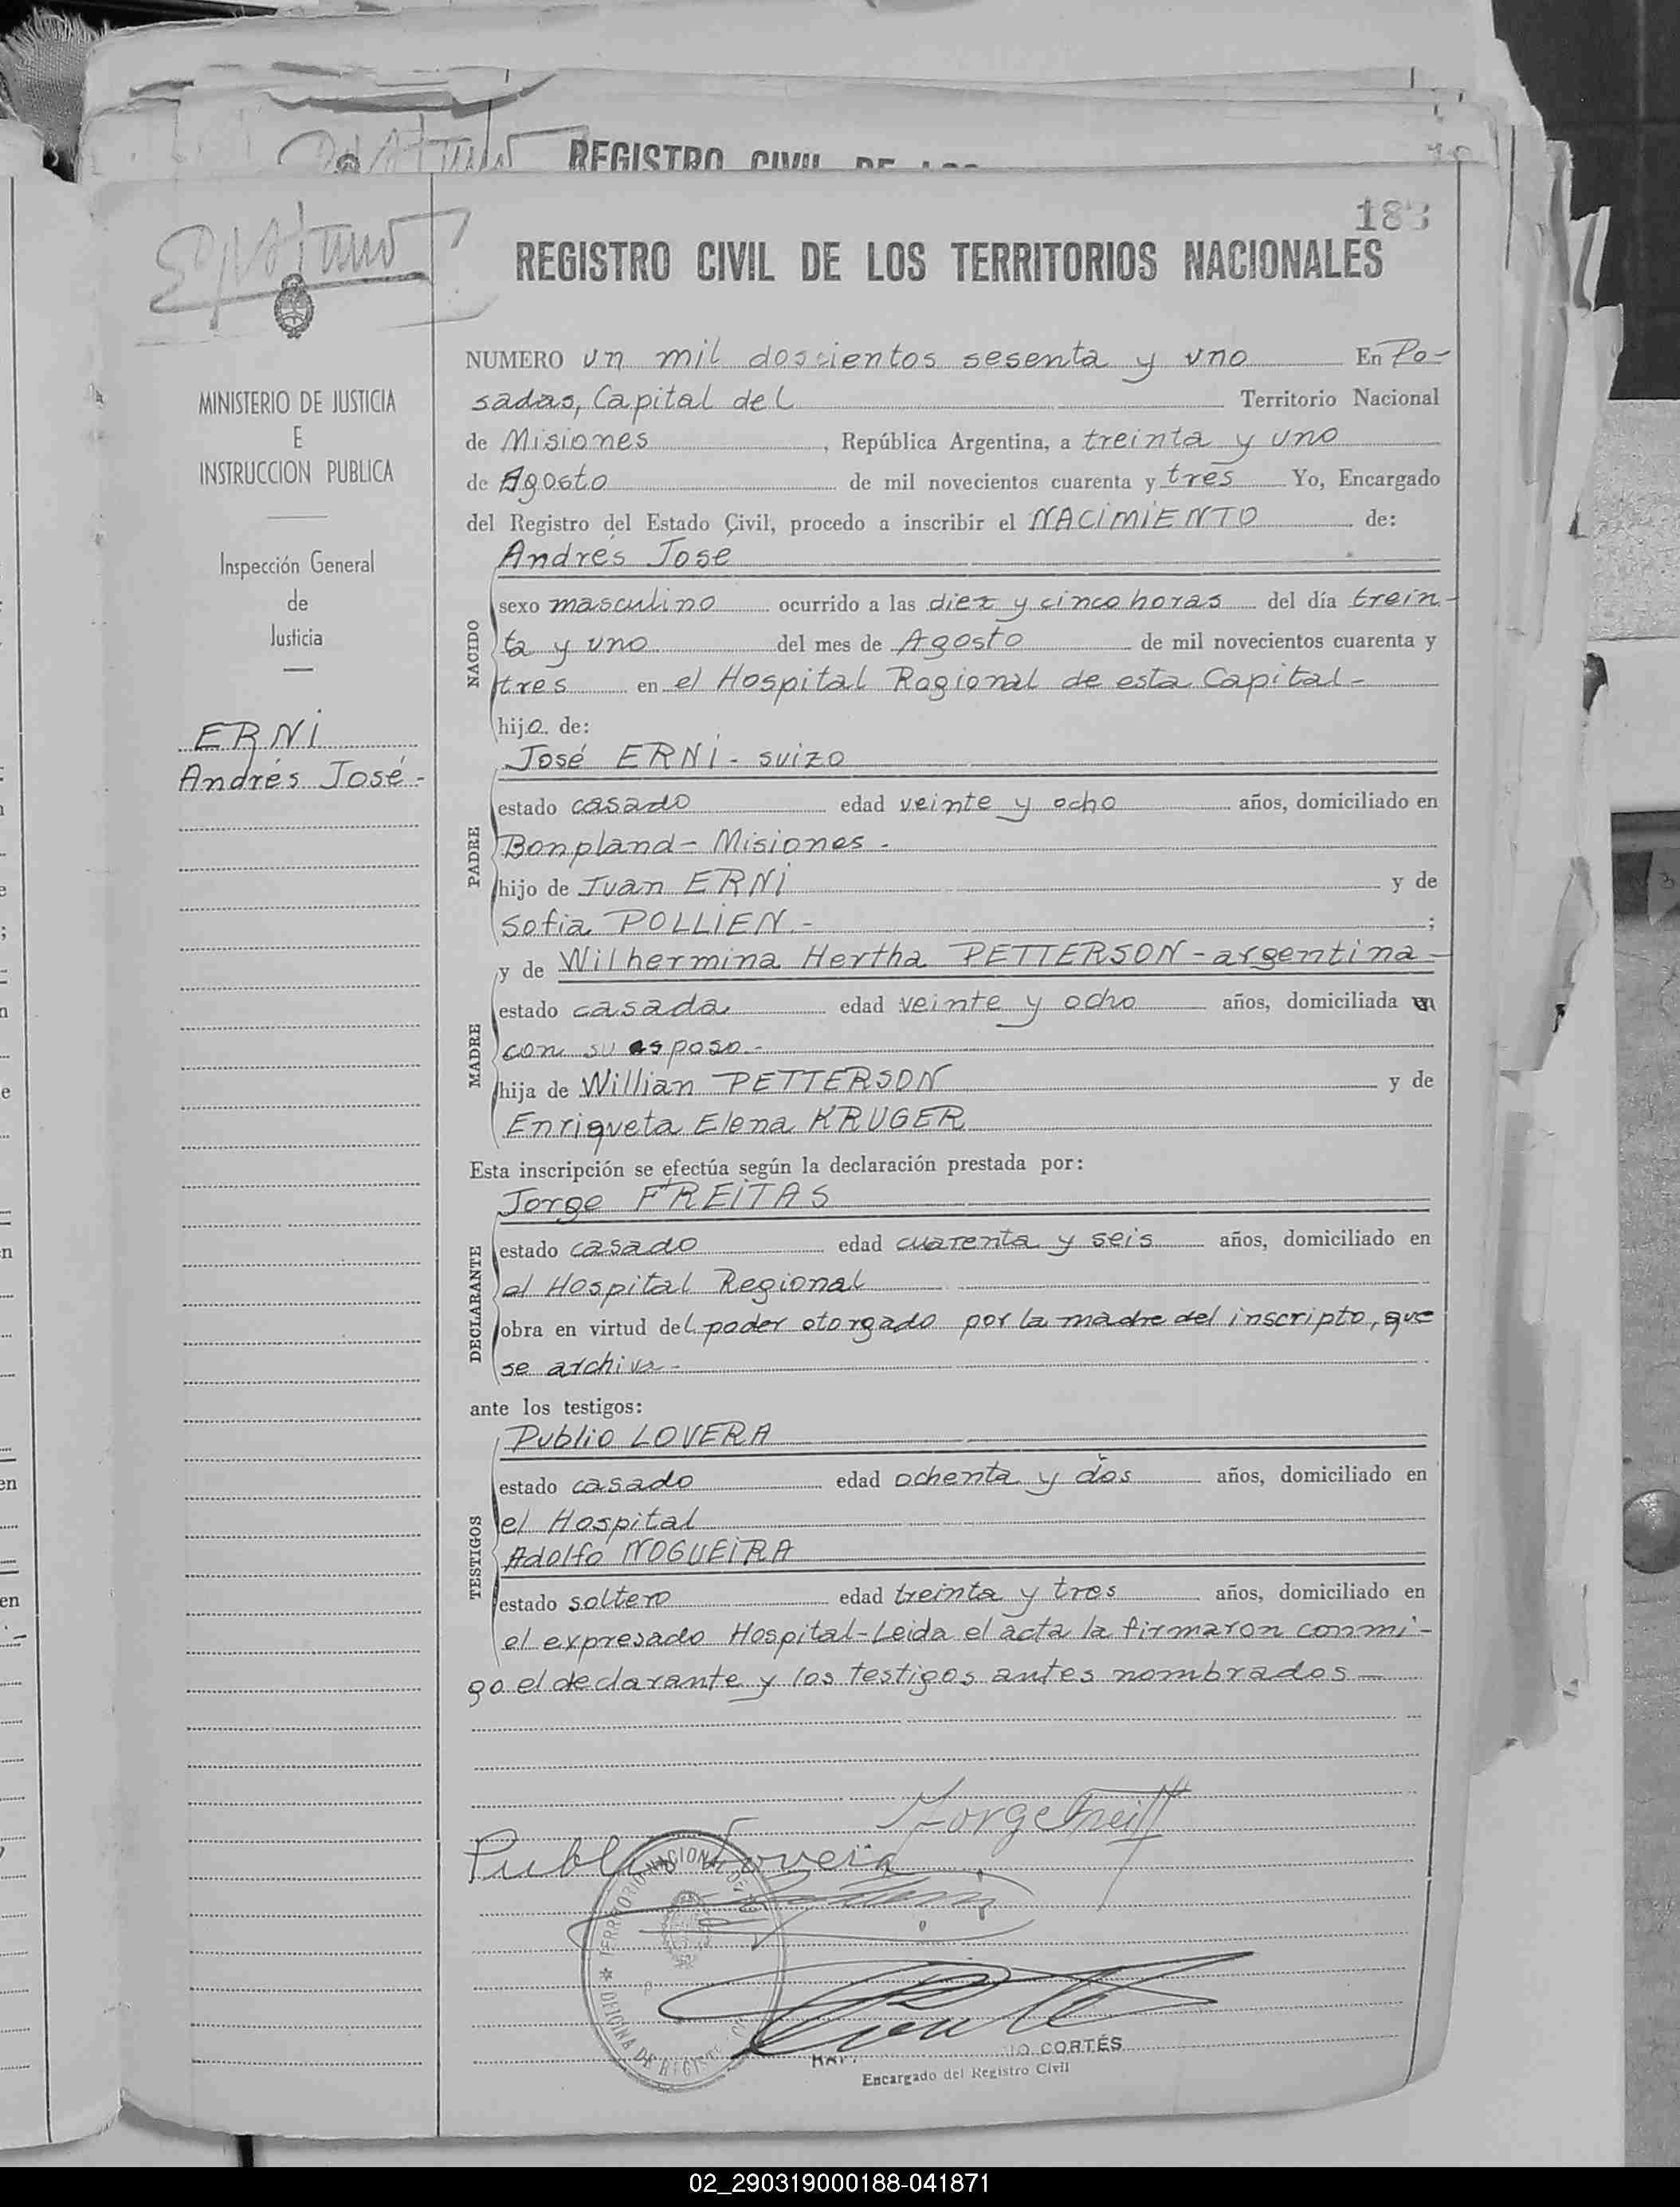 REGISTRO CIVIL DE LOS
183
REGISTRO CIVIL DE LOS TERRITORIOS NACIONALES
MINISTERIO DE JUSTICIA
E
INSTRUCCION PUBLICA
Inspección General
de
Justicia
ERNI
Andrés José-
NUMERO un mil doscientos sesenta y uno En Po-
sadas, Capital del Territorio Nacional
de Misiones, República Argentina, a treinta y uno
de Agosto de mil novecientos cuarenta y tres Yo, Encargado
del Registro del Estado Civil, procedo a inscribir el NACIMIENTO de:
Andrés Jose
NACIDO
sexo masculino ocurrido a las diez y cinco horas del día trein-
ta y uno del mes de Agosto de mil novecientos cuarenta y
tres en el Hospital Ragional de esta Capital-
hijo de:
José ERNI - suizo
PADRE
estado casado edad veinte y ocho años, domiciliado en
Bonpland - Misiones -
hijo de Juan ERNI y de
Sofia POLLIEN.- ;
y de Wilhermina Hertha PETTERSON - argentina -
MADRE
estado casada edad veinte y ocho años, domiciliada en
con su esposo.-
hija de Willian PETTERSON y de
Enriqueta Elena KRUGER
Esta inscripción se efectúa según la declaración prestada por:
Jorge FREITAS
DECLARANTE
estado casado edad cuarenta y seis años, domiciliado en
el Hospital Regional
obra en virtud del poder otorgado por la madre del inscripto, que
se archiva -
ante los testigos:
Publio LOVERA
TESTIGOS
estado casado edad ochenta y dos años, domiciliado en
el Hospital
Adolfo NOGUEIRA
estado soltero edad treinta y tres años, domiciliado en
el expresado Hospital-Leida el acta la firmaron conmi-
go el declarante y los testigos antes nombrados -
Publio Lovera
TERRITORIO NACIONAL DE
OFICINA DE REGISTRO
CORTÉS
Encargado del Registro Civil
02_290319000188-041871